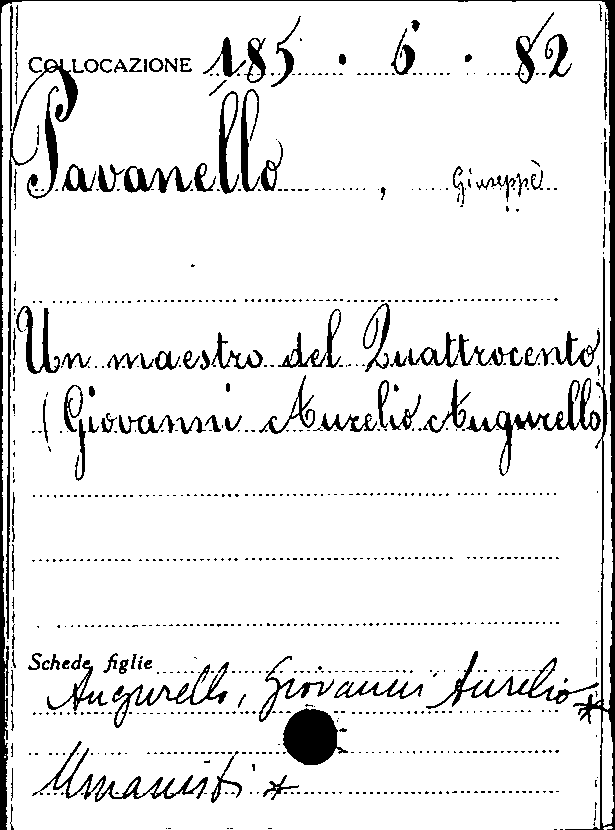 COLLOCAZIONE 185 . 6 . 82
Pavanello , Giuseppe
Un maestro del Quattrocento
(Giovanni Aurelio Augurello)
Schede figlie
Augurello, Giovanni Aurelio *
Umanisti *